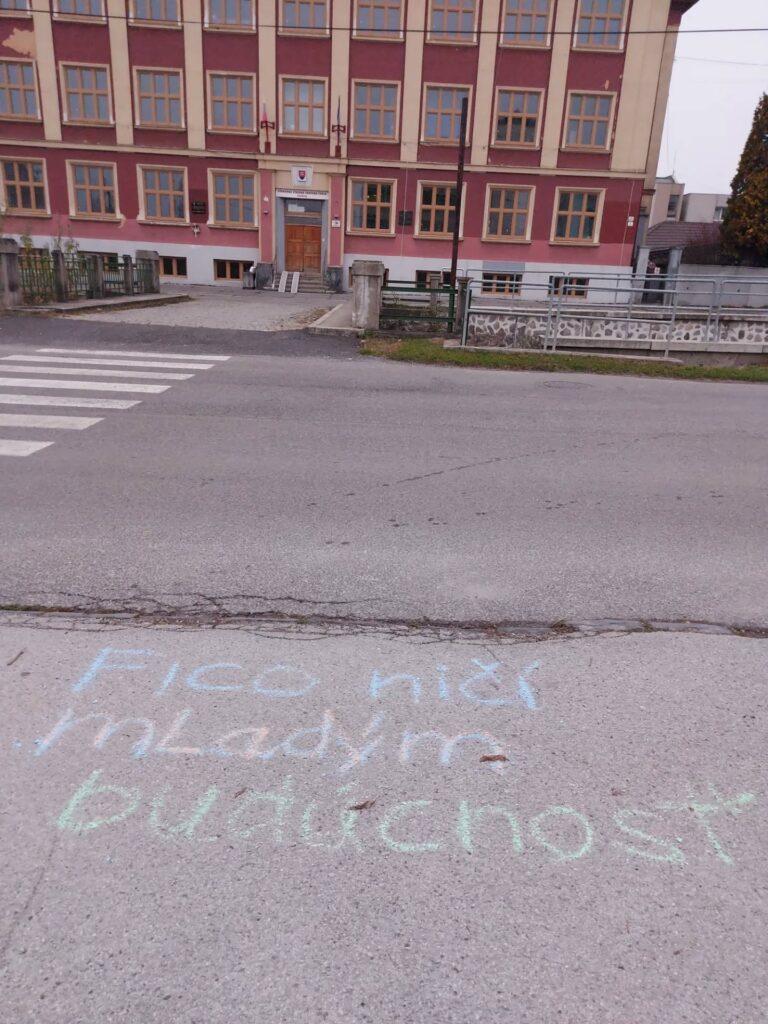 Fico ničí
mladým
budúcnosť